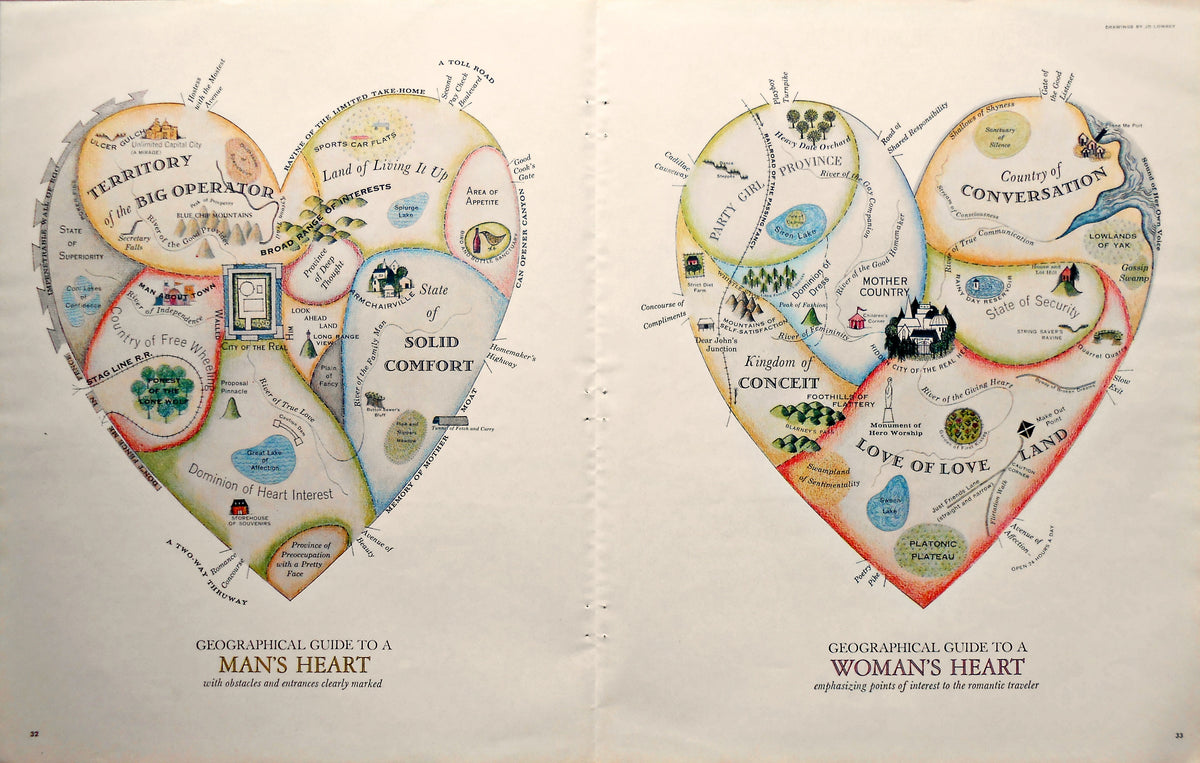 DRAWINGS BY JO LOWREY
A TOLL ROAD
Second
Pay Check
Boulevard
Hostess
with the Mostest
Avenue
RAVINE OF THE LIMITED TAKE-HOME
ULCER GULCH
Unlimited Capital City
(A MIRAGE)
TERRITORY
of the BIG OPERATOR
Path of Prosperity
BLUE CHIP MOUNTAINS
River of the Good Provider
Secretary
Falls
SPORTS CAR FLATS
Land of Living It Up
BROAD RANGE OF INTERESTS
Splurge
Lake
Good
Cook's
Gate
AREA OF
APPETITE
CAN OPENER CANYON
IMPENETRABLE WALL OF EGO
STATE
OF
SUPERIORITY
Cool Lakes
of
Confidence
MAN
ABOUT TOWN
River of Independence
Country of Free Wheeling
STAG LINE R.R.
FOREST
OF THE
LONE WOLF
WALLED
CITY OF THE REAL
HIM
Province
of Deep
Thought
LOOK
AHEAD
LAND
LONG RANGE
VIEW
Plain
of
Fancy
ARMCHAIRVILLE
State
of
SOLID
COMFORT
River of the Family Man
Button Sewer's
Bluff
Pipe and
Slippers
Meadow
Homemaker's
Highway
MEMORY OF MOTHER MOAT
Tunnel of Fetch and Carry
Proposal
Pinnacle
River of True Love
Caution Dam
Great Lake
of
Affection
Dominion of Heart Interest
STOREHOUSE
OF SOUVENIRS
Province of
Preoccupation
with a Pretty
Face
Avenue of
Beauty
Romance
Concourse
A TWO-WAY THRUWAY
GEOGRAPHICAL GUIDE TO A
MAN'S HEART
with obstacles and entrances clearly marked
32
Playboy
Turnpike
Cadillac
Causeway
Dance
Steppes
Heavy Date Orchard
PARTY GIRL PROVINCE
RAILROAD OF THE PASSING FANCY
River of the Gay Companion
Swoon Lake
Road of
Shared Responsibility
Strict Diet
Farm
Dominion of
Dress
Peak of Fashion
River of Femininity
River of the Good Homemaker
MOTHER
COUNTRY
Children's
Corner
MOUNTAINS OF
SELF-SATISFACTION
Concourse of
Compliments
Dear John's
Junction
Kingdom of
CONCEIT
FOOTHILLS OF
FLATTERY
HIDDEN CITY OF THE REAL HER
Gate of
the Good
Listener
Shallows of Shyness
Sanctuary
of
Silence
Country of
CONVERSATION
Stream of Consciousness
River of True Communication
Sound of Her Own Voice
LOWLANDS
OF YAK
Gossip
Swamp
RAINY DAY RESERVOIR
House and
Lot Hill
State of Security
STRING SAVER'S
RAVINE
Quarrel Quarry
Slow
Exit
River of the Giving Heart
Monument of
Hero Worship
LOVE OF LOVE LAND
Make Out
Point
CAUTION
CORNER
Swampland
of
Sentimentality
Just Friends Lane
(straight and narrow)
Flirtation Walk
PLATONIC
PLATEAU
Avenue of
Affection,
OPEN 24 HOURS A DAY
Poetry
Pike
GEOGRAPHICAL GUIDE TO A
WOMAN'S HEART
emphasizing points of interest to the romantic traveler
33